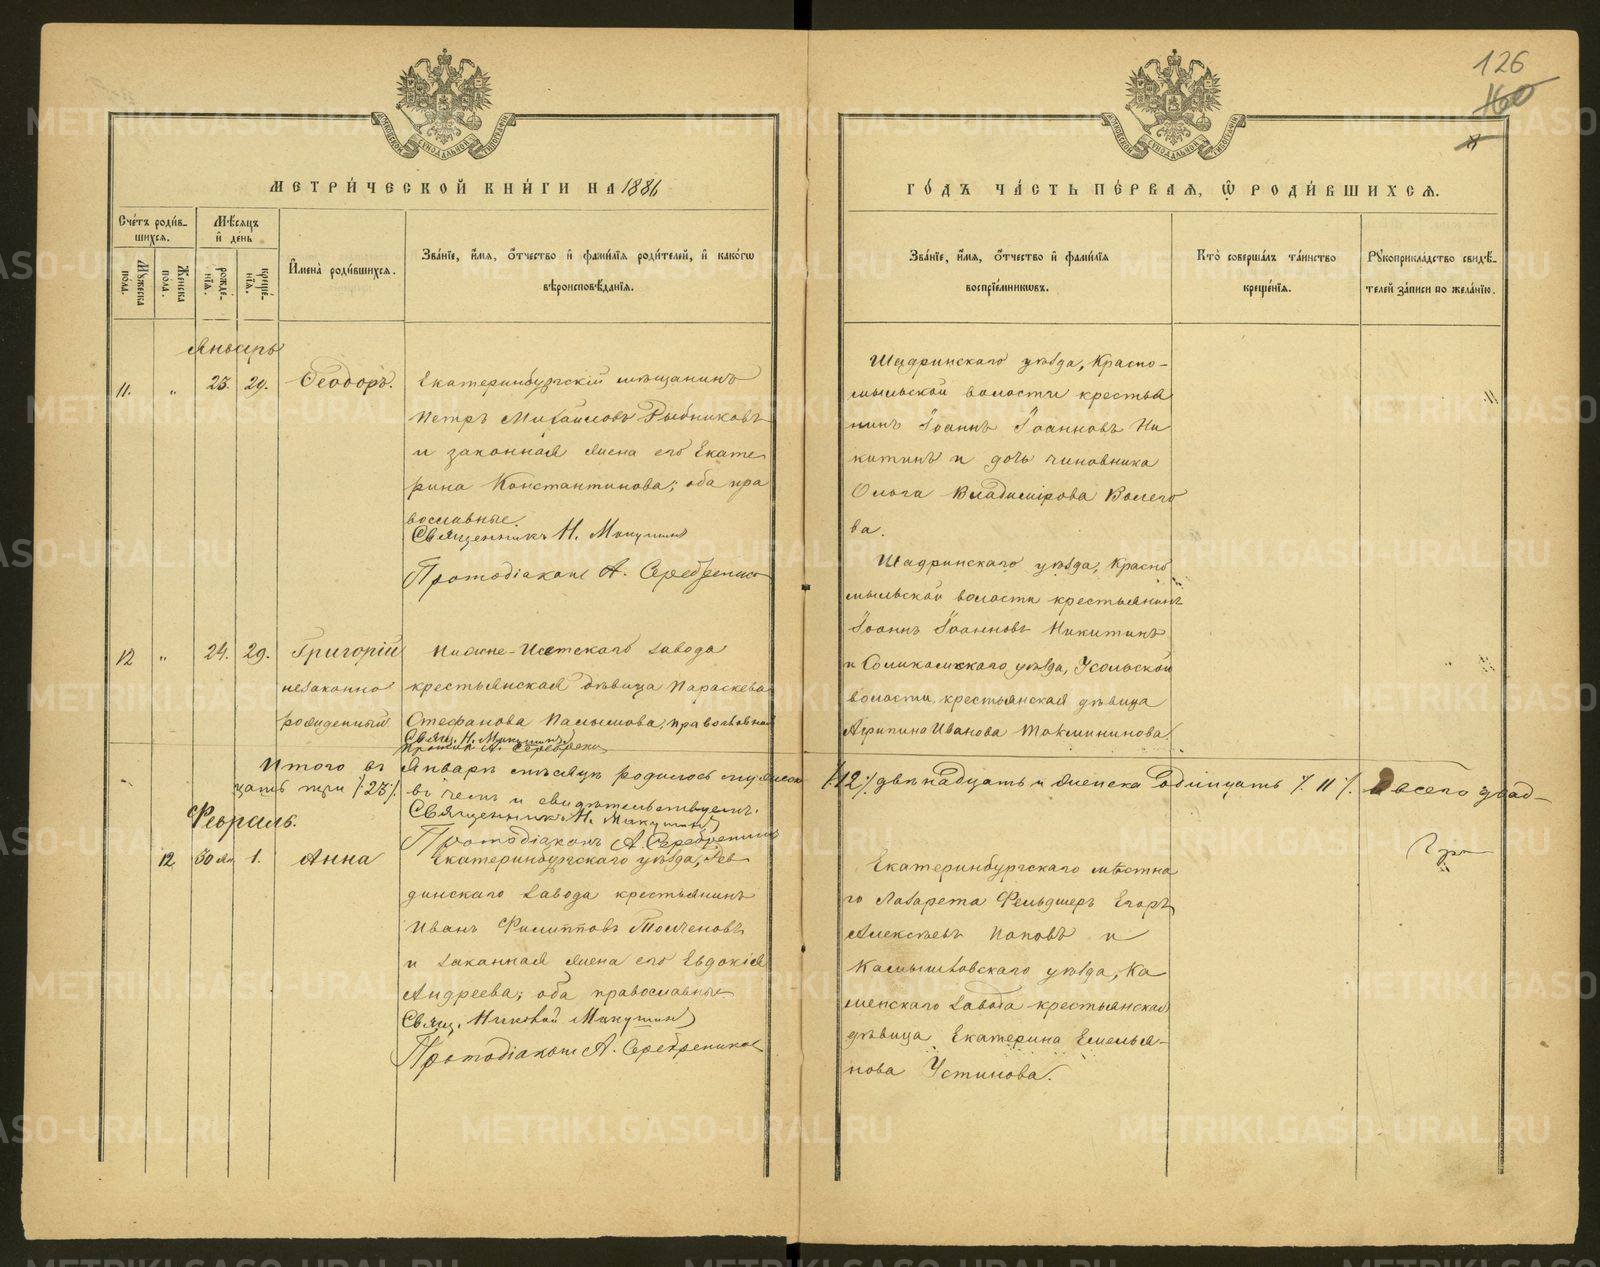 126
160
МОСКОВСКОЙ СѴНОДАЛЬНОЙ ТИПОГРАФІИ
МОСКОВСКОЙ СѴНОДАЛЬНОЙ ТИПОГРАФІИ
МЕТРИ́ЧЕСКОЙ КНИ́ГИ НА 1886
ГО́ДЪ ЧА́СТЬ ПЕ́РВАЯ, Ѡ҆ РОДИ́ВШИХСЯ.
Сче́тъ роди́в-
шихся.
Мꙋжеска
по́ла.
Женска
по́ла.
Мѣ́сяцъ
и҆ де́нь
рожде́-
нїѧ.
креще́-
нїѧ.
И҆мена̀ роди́вшихся.
Зва́нїе, и҆́мѧ, ѻ҆́тчество и҆ фами́лїѧ роди́телей, и҆ како́гѡ
вѣроисповѣ́данїѧ.
Зва́нїе, и҆́мѧ, ѻ҆́тчество и҆ фами́лїѧ
воспрїе́мникѡвъ.
Кто̀ соверша́лъ та́инство
креще́нїѧ.
Рꙋкоприкла́дство свидѣ́-
телей за́писи по жела́нїю.
Январь
11. " 23. 29. Ѳеодоръ.
Екатеринбургскій мѣщанинъ
Петръ Михайловъ Рыбниковъ
и законная жена его Екате
рина Константинова; оба пра
вославные.
Священникъ Н. Макушинъ
Протодіаконъ А. Серебрениковъ
Шадринскаго уѣзда, Красно-
мыльской волости крестья
нинъ Іоаннъ Іоанновъ Ни
китинъ и дочь чиновника
Ольга Владимірова Волего
ва.
12 " 24. 29. Григорій
незаконно
рожденный
Нижне-Исетскаго завода
крестьянская дѣвица Параскева
Стефанова Палымова, православная
Свящ. Н. Макушинъ
Протод. А. Серебрени
Шадринскаго уѣзда, Красно
мыльской волости крестьянинъ
Іоаннъ Іоанновъ Никитинъ
и Соликамскаго уѣзда, Усольской
волости, крестьянская дѣвица
Агрипина Иванова Токмининова
Итого въ Январѣ мѣсяцѣ родилось мужеска /:12:/ двѣнадцать и женска одинцать /:11:/. а всего двад-
цать три /:23/. въ чемъ и свидѣтельствуемъ.
Священникъ Н. Макушинъ
Протодіаконъ А. Серебрениковъ
Февраль.
12 30 Ян 1. Анна
Екатеринбургскаго уѣзда, Рев
динскаго завода крестьянинъ
Иванъ Филипповъ Толченовъ
и законная жена его Евдокія
Андреева; оба православные
Свящ. Николай Макушинъ
Протодіаконъ А. Серебрениковъ
Екатеринбургскаго мѣстна
го Лазарета Фельдшеръ Егоръ
Алексѣевъ Поповъ и
Камышловскаго уѣзда, Ка
менскаго завода крестьянская
дѣвица Екатерина Емелья-
нова Устинова.